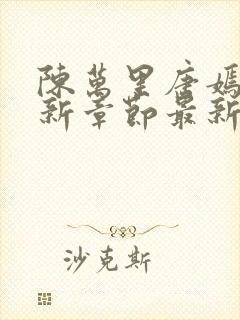 陳萬里唐嫣
新章節最新
沙克斯